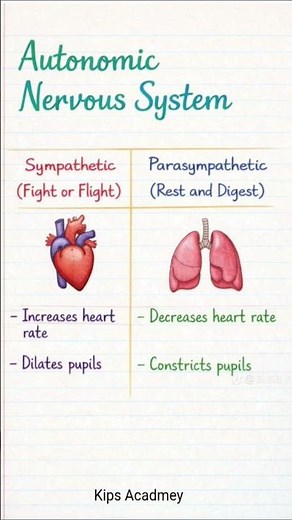 Autonomic
Nervous System
Sympathetic
(Fight or Flight)
Parasympathetic
(Rest and Digest)
- Increases heart
rate
- Dilates pupils
- Decreases heart rate
- Constricts pupils
Kips Acadmey